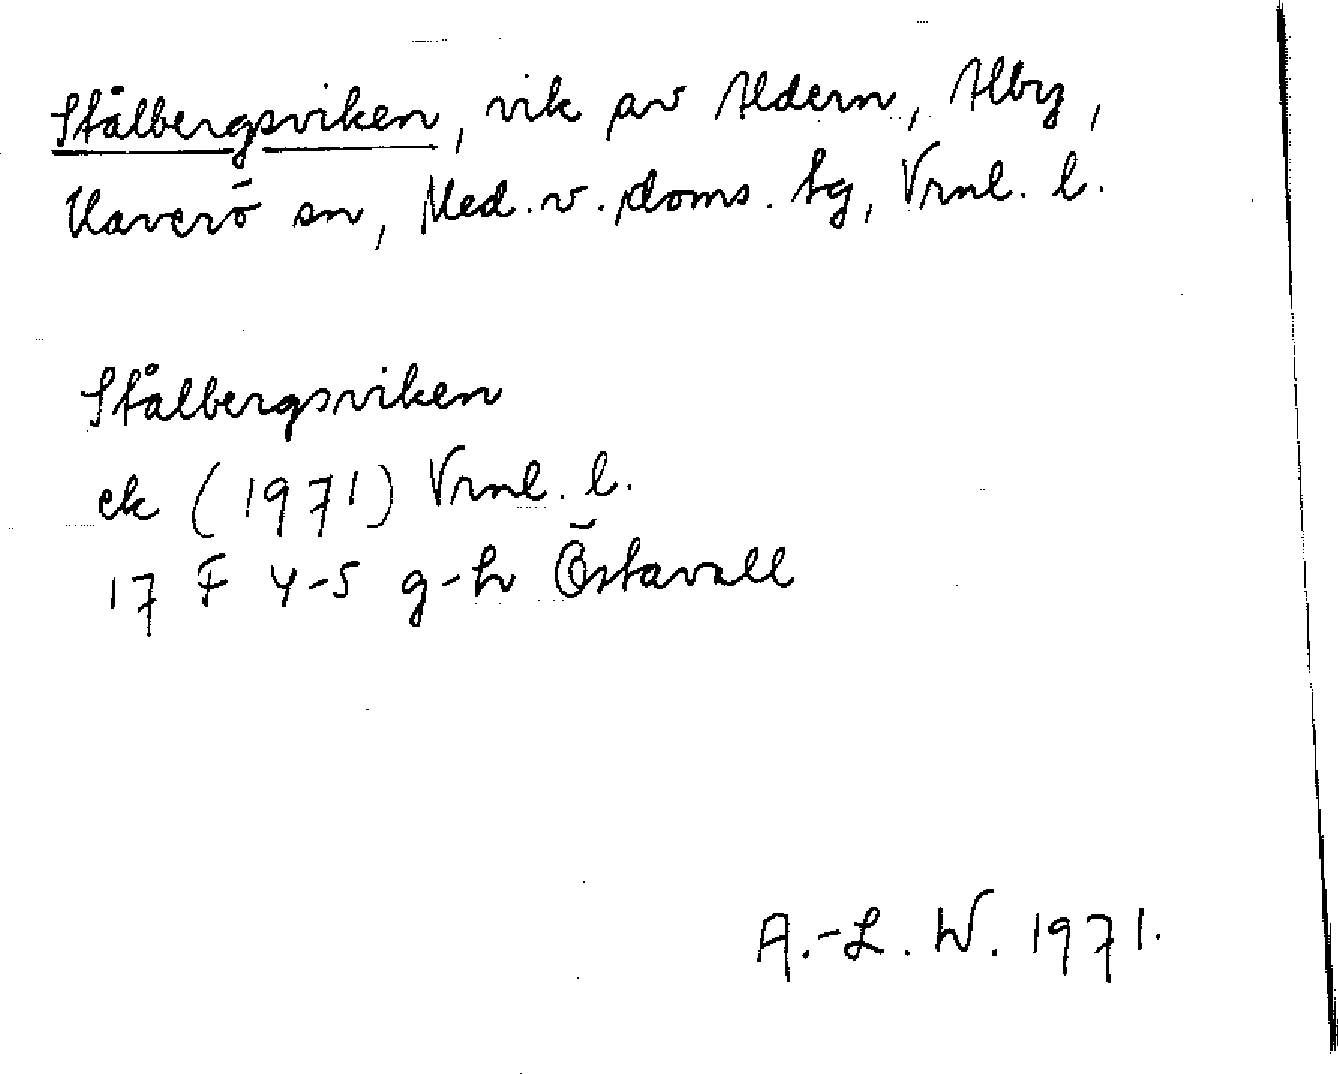 Stålbergsviken, vik av Aldern, Alby,
Haverö sn, Med. v. doms. tg, Vrnl. l.
Stålbergsviken
ek (1971) Vrnl. l.
17 F 4-5 g-h Östavall
A.-L. W. 1971.